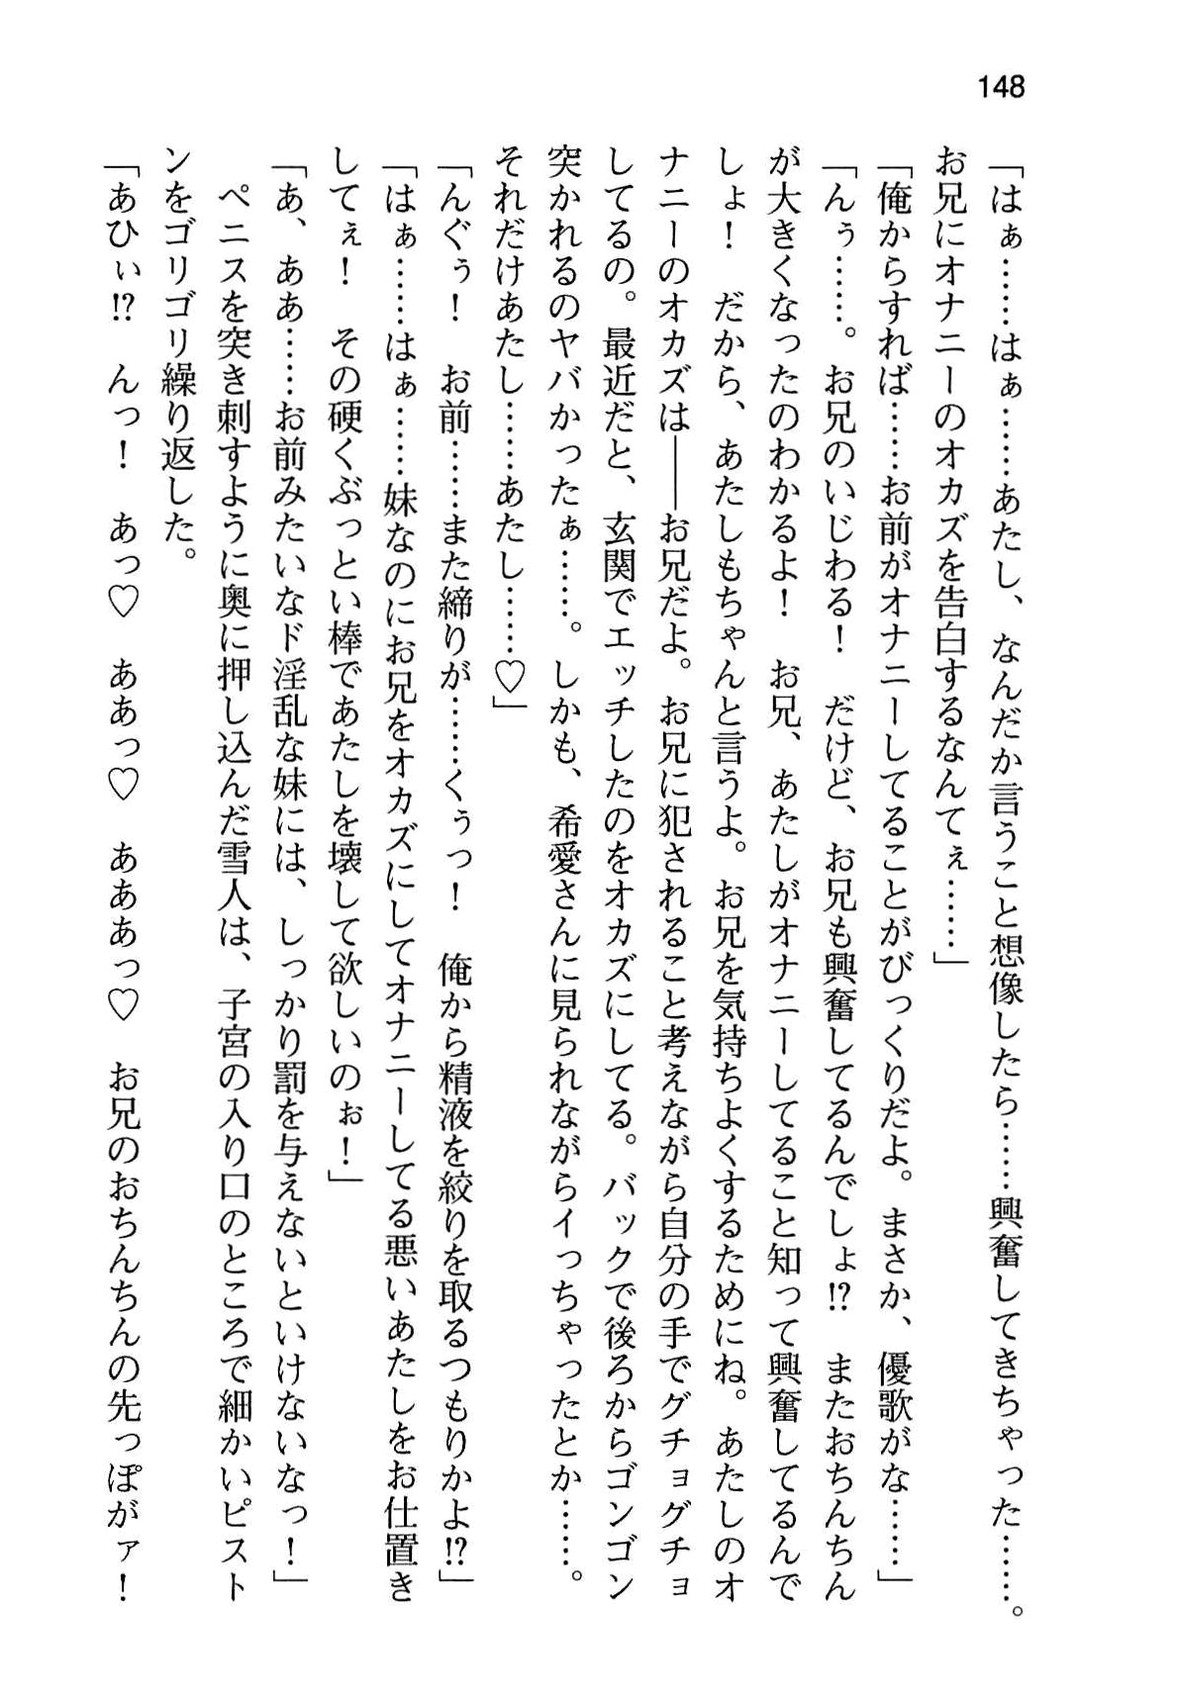 148
「はぁ……はぁ……あたし、なんだか言うこと想像したら……興奮してきちゃった……。
お兄にオナニーのオカズを告白するなんてぇ……」
「俺からすれば……お前がオナニーしてることがびっくりだよ。まさか、優歌がな……」
「んぅ……。お兄のいじわる！　だけど、お兄も興奮してるんでしょ!?　またおちんちん
が大きくなったのわかるよ！　お兄、あたしがオナニーしてること知って興奮してるんで
しょ！　だから、あたしもちゃんと言うよ。お兄を気持ちよくするためにね。あたしのオ
ナニーのオカズは――お兄だよ。お兄に犯されること考えながら自分の手でグチョグチョ
してるの。最近だと、玄関でエッチしたのをオカズにしてる。バックで後ろからゴンゴン
突かれるのヤバかったぁ……。しかも、希愛さんに見られながらイっちゃったとか……。
それだけあたし……あたし……♡」
「んぐぅ！　お前……また締りが……くぅっ！　俺から精液を絞りを取るつもりかよ!?」
「はぁ……はぁ……妹なのにお兄をオカズにしてオナニーしてる悪いあたしをお仕置き
してぇ！　その硬くぶっとい棒であたしを壊して欲しいのぉ！」
「あ、ああ……お前みたいなド淫乱な妹には、しっかり罰を与えないといけないなっ！」
　ペニスを突き刺すように奥に押し込んだ雪人は、子宮の入り口のところで細かいピスト
ンをゴリゴリ繰り返した。
「あひぃ!?　んっ！　あっ♡　ああっ♡　あああっ♡　お兄のおちんちんの先っぽがァ！